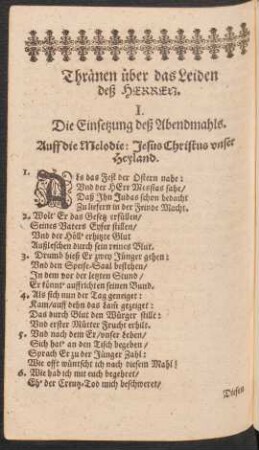 Thränen über das Leiden
deß HERREN.
I.
Die Einsetzung deß Abendmahls.
Auff die Melodie: Jesus Christus unser
Heyland.
1. Als das Fest der Ostern nahe:
Vnd der HErr Messias sahe/
Daß Ihn Judas schon bedacht
Zu liefern in der Feinde Macht.
2. Wolt' Er das Gesetz erfüllen/
Seines Vaters Eyfer stillen/
Vnd der Höll' erhitzte Glut
Außleschen durch sein reines Blut.
3. Drumb hieß Er zwey Jünger gehen:
Vnd den Speise-Saal bestehen/
In dem vor der letzten Stund/
Er könnt' auffrichten seinen Bund.
4. Als sich nun der Tag geneiget:
Kam/ auff dehn das Lam gezeiget:
Das durch Blut den Würger stillt:
Vnd erster Mütter Frucht erhilt.
5. Vnd nach dem Er/ unser Leben/
Sich hat' an den Tisch begeben/
Sprach Er zu der Jünger Zahl:
Wie offt wüntscht ich nach diesem Mahl!
6. Wie hab ich mit euch begehret/
Eh' der Creutz-Tod mich beschweret/
Diesen